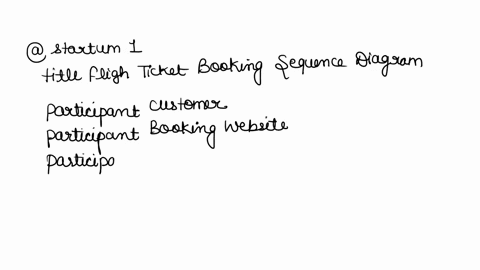 @ startum 1
title fligh Ticket Booking Sequence Diagram
participant customer
participant Booking Website
participa